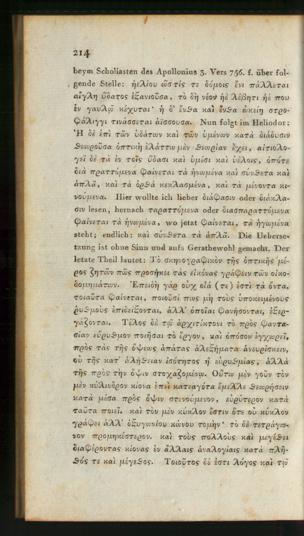 214
beym Scholiasten des Apollonius 3. Vers 756. f. über fol-
gende Stelle: ἠελίου ὥστις τε δόμοις ἔνι πάλλεται
αἴγλη ὕδατος ἐξανιοῦσα, τὸ δὴ νέον ἠὲ λέβητι ἠέ που
ἐν γαυλῷ κέχυται· ἡ δ' ἔνθα καὶ ἔνθα ὠκείῃ στρο-
φάλιγγι τινάσσεται ἀΐσσουσα. Nun folgt im Heliodor:
Ἡ δὲ ἐπὶ τῶν ὑδάτων καὶ τῶν ὑμένων κατὰ διάδυσιν
θεωροῦσα ὀπτικὴ ἐλάττω μὲν θεωρίαν ἔχει, αἰτιολο-
γεῖ δὲ τὰ ἐν τοῖς ὕδασι καὶ ὑμέσι καὶ ὑέλοις, ὁπότε
διὰ πραττόμενα φαίνεται τὰ ἡνωμένα καὶ σύνθετα καὶ
ἁπλᾶ, καὶ τὰ ὀρθὰ κεκλασμένα, καὶ τὰ μένοντα κι-
νούμενα. Hier wollte ich lieber διάφασιν oder διάκλα-
σιν lesen, hernach ταραττόμενα oder διασπαραττόμενα
φαίνεται τὰ ἡνωμένα, wo jetzt φαίνεται, τὰ ἡγωμένα
steht; endlich: καὶ σύνθετα τὰ ἁπλᾶ. Die Ueberse-
tzung ist ohne Sinn und aufs Gerathewohl gemacht. Der
letzte Theil lautet: Τὸ σκηνογραφικὸν τῆς ὀπτικῆς μέ-
ρος ζητῶν πῶς προσήκει τὰς εἰκόνας γράφειν τῶν οἰκο-
δομημάτων. Ἐπειδὴ γὰρ οὐχ οἷά (τε) ἐστὶ τὰ ὄντα,
τοιαῦτα φαίνεται, ποιοῦσί πως μὴ τοὺς ὑποκειμένους
ῥυθμοὺς ἐπιδείξονται, ἀλλ' ὁποῖοι φανήσονται, ἐξερ-
γάζονται. Τέλος δὲ τῷ ἀρχιτέκτονι τὸ πρὸς φαντα-
σίαν εὔρυθμον ποιῆσαι τὸ ἔργον, καὶ ὁπόσον ἐγχωρεῖ,
πρὸς τὰς τῆς ὄψεως ἀπάτας ἀλεξήματα ἀνευρίσκειν,
οὐ τῆς κατ' ἀλήθειαν ἰσότητος ἢ εὐρυθμίας, ἀλλὰ
τῆς πρὸς τὴν ὄψιν στοχαζομένῳ. Οὕτω μὲν γοῦν τὸν
μὲν κύλινδρον κίονα ἐπεὶ κατεαγότα ἔμελλε θεωρήσειν
κατὰ μέσα πρὸς ὄψιν στινούμενον, εὐρύτερον κατὰ
ταῦτα ποιεῖ. καὶ τὸν μὲν κύκλον ἔστιν ὅτε οὐ κύκλον
γράφει ἀλλ' ὀξυγωνίου κώνου τομὴν· τὸ δὲ τετράγω-
νον προμηκέστερον. καὶ τοὺς πολλοὺς καὶ μεγέθει
διαφέροντας κίονας ἐν ἄλλαις ἀναλογίαις κατὰ πλῆ-
θός τε καὶ μέγεθος. Τοιοῦτος δέ ἐστι λόγος καὶ τῷ